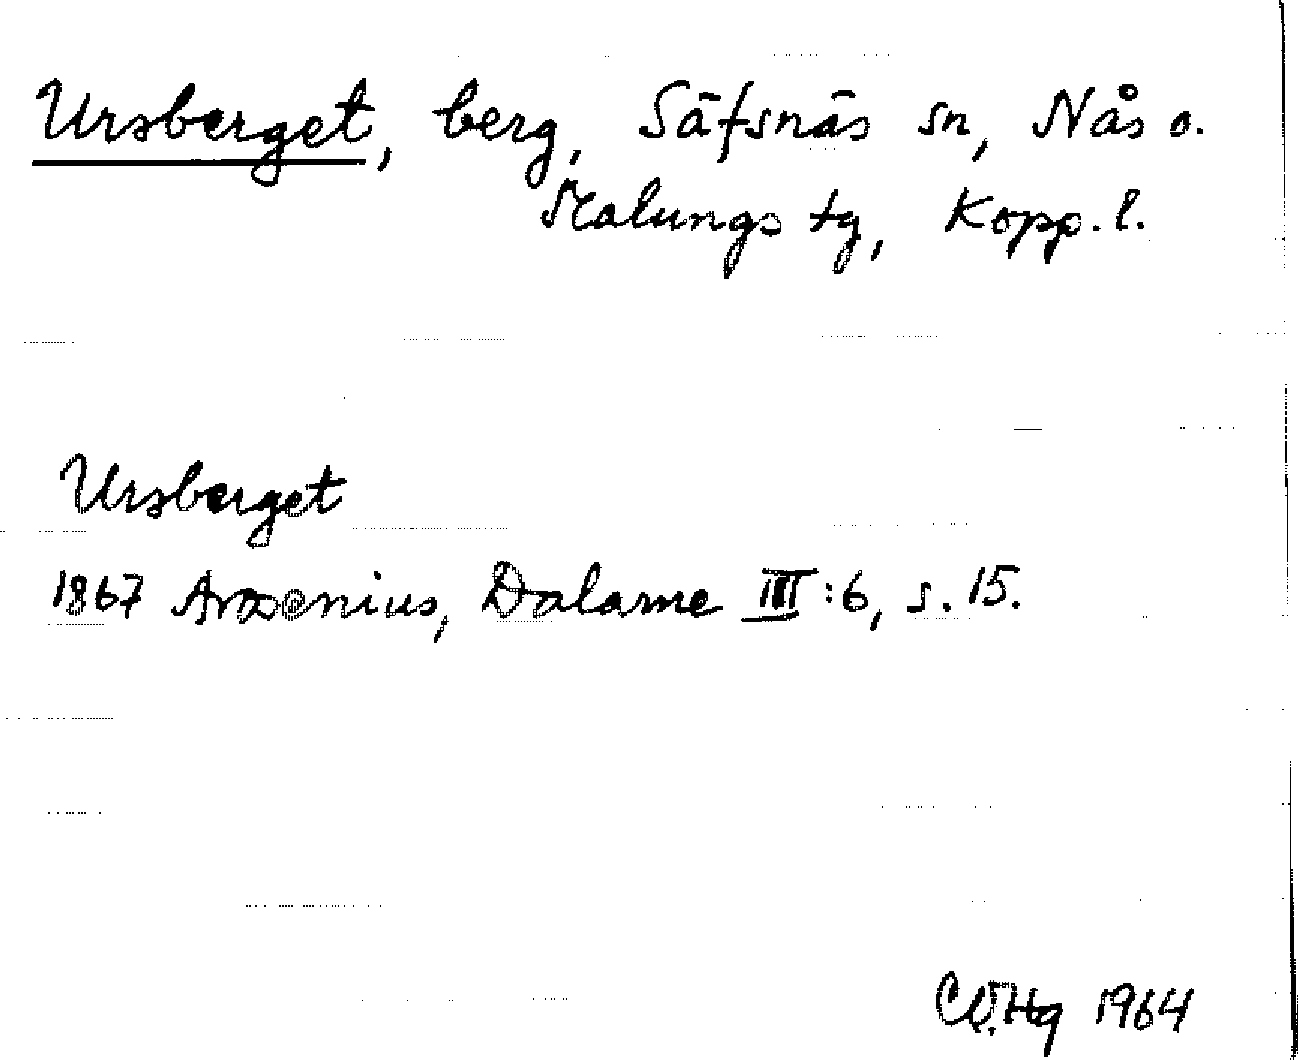 Ursberget, berg, Säfsnäs sn, Nås o.
Malungs tg, Kopp. l.
Ursberget
1867 Arosenius, Dalarne III:6, s. 15.
1964